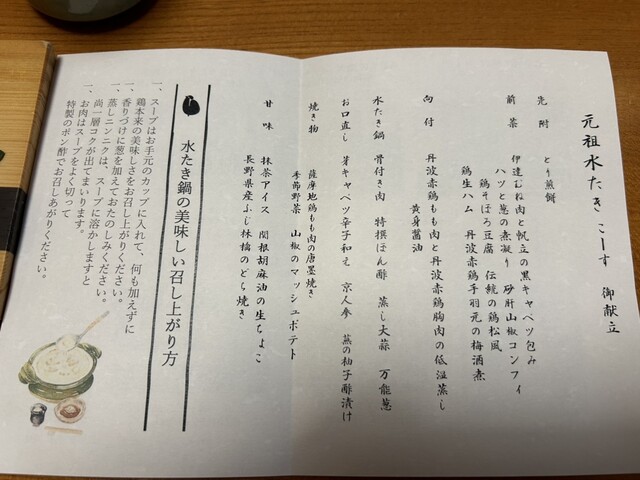 元祖水たきこーす 御献立
先附 とり煎餅
前菜 伊達むね肉と帆立の黒キャベツ包み
ハツと葱の煮凝り 砂肝山椒コンフィ
鶏そぼろ豆腐 伝統の鶏松風
鶏生ハム 丹波赤鶏手羽元の梅酒煮
向付 丹波赤鶏もも肉と丹波赤鶏胸肉の低温蒸し
黄身醤油
水たき鍋 骨付き肉 特撰ぽん酢 蒸し大蒜 万能葱
お口直し 芽キャベツ辛子和え 京人参 蕪の柚子酢漬け
焼き物 薩摩地鶏もも肉の唐墨焼き
季節野菜 山椒のマッシュポテト
甘味 抹茶アイス 関根胡麻油の生ちょこ
長野県産ふじ林檎のどら焼き
水たき鍋の美味しい召し上がり方
一、スープはお手元のカップに入れて、何も加えずに
鶏本来の美味しさをお召し上がりください。
一、香りづけに葱を加えておたのしみください。
一、蒸しニンニクは、スープに溶かしますと
尚一層コクが出てまいります。
一、お肉はスープをよく切って
特製のポン酢でお召しあがりください。